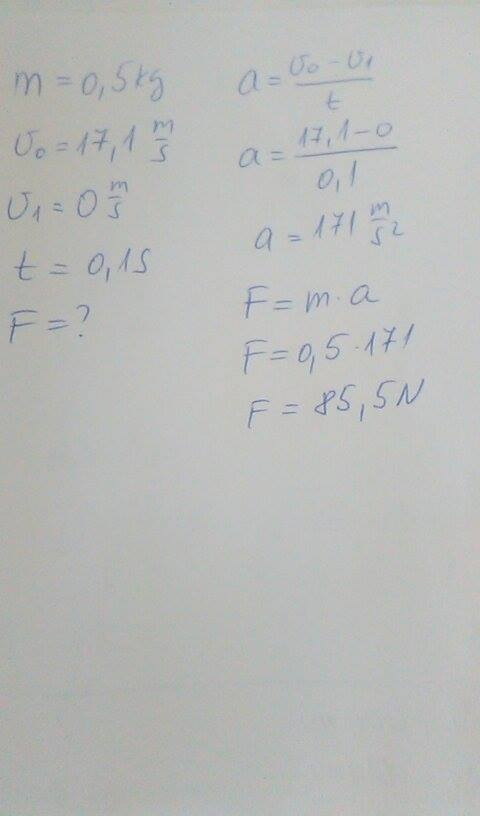 m = 0,5kg
υ₀ = 17,1 m/s
υ₁ = 0 m/s
t = 0,1s
F = ?
a = υ₀ - υ₁ / t
a = 17,1 - 0 / 0,1
a = 171 m/s²
F = m · a
F = 0,5 · 171
F = 85,5N